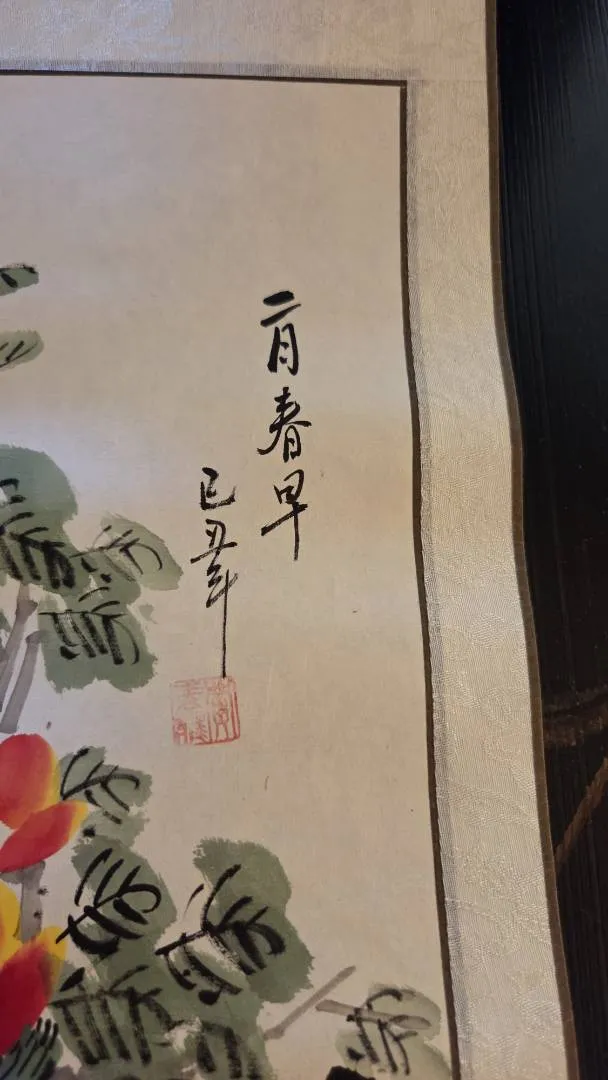 二月春早
己丑年